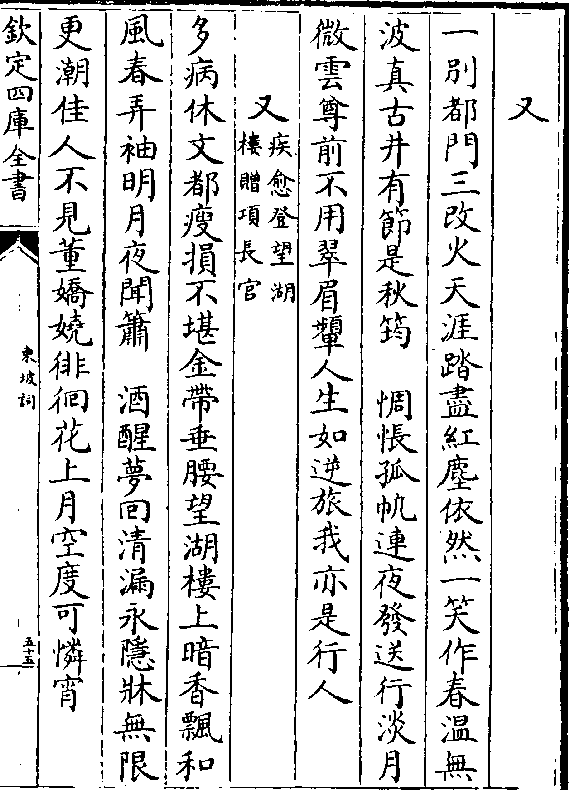 又
一別都門三改火天涯踏盡紅塵依然一笑作春温無
波真古井有節是秋筠　惆悵孤帆連夜發送行淡月
微雲尊前不用翠眉顰人生如逆旅我亦是行人
又
疾愈登望湖
樓贈項長官
多病休文都瘦損不堪金帶垂腰望湖樓上暗香飄和
風春弄袖明月夜聞簫　酒醒夢回清漏永隱牀無限
更潮佳人不見董嬌嬈徘徊花上月空度可憐宵
欽定四庫全書
東坡詞
五十五